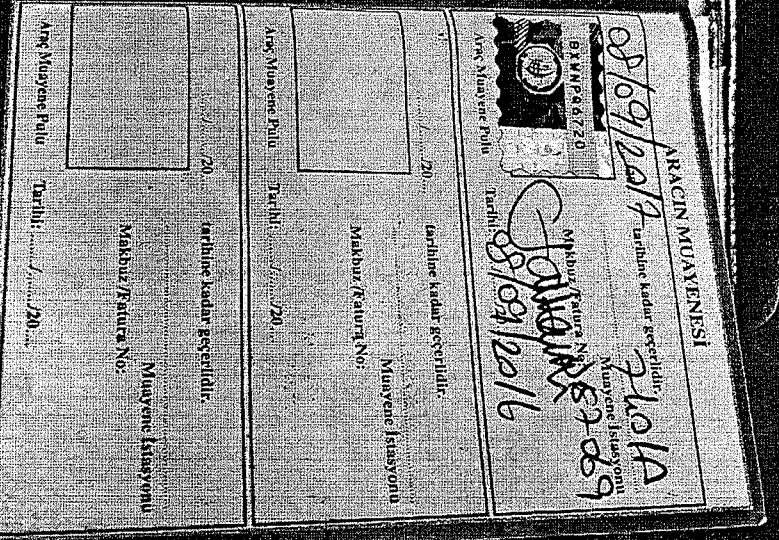 ARACIN MUAYENESİ
08/09/2017 tarihine kadar geçerlidir.
Muayene İstasyonu
BAWNPQ 6720
Makbuz/Fatura No:
Araç Muayene Pulu
Tarihi: 08/09/2016
......../......../20.... tarihine kadar geçerlidir.
Muayene İstasyonu
Makbuz/Fatura No:
Araç Muayene Pulu
Tarihi: ......../......../20....
......../......../20.... tarihine kadar geçerlidir.
Muayene İstasyonu
Makbuz/Fatura No:
Araç Muayene Pulu
Tarihi: ......../......../20....